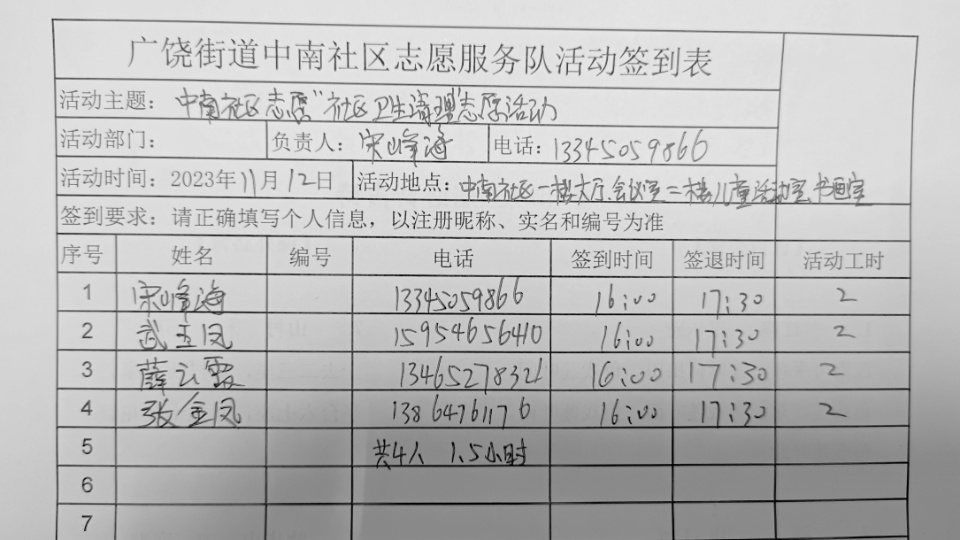 广饶街道中南社区志愿服务队活动签到表
活动主题：中南社区志愿"社区卫生清理"志愿活动
活动部门： 负责人：宋峰海 电话：13345059866
活动时间：2023年11月12日 活动地点：中南社区一楼大厅.会议室二楼儿童活动室.书画室
签到要求：请正确填写个人信息，以注册昵称、实名和编号为准
序号 姓名 编号 电话 签到时间 签退时间 活动工时
1 宋峰海 13345059866 16:00 17:30 2
2 武玉凤 15954656410 16:00 17:30 2
3 薛云霞 13465278321 16:00 17:30 2
4 张金凤 13864761176 16:00 17:30 2
5 共4人 1.5小时
6
7